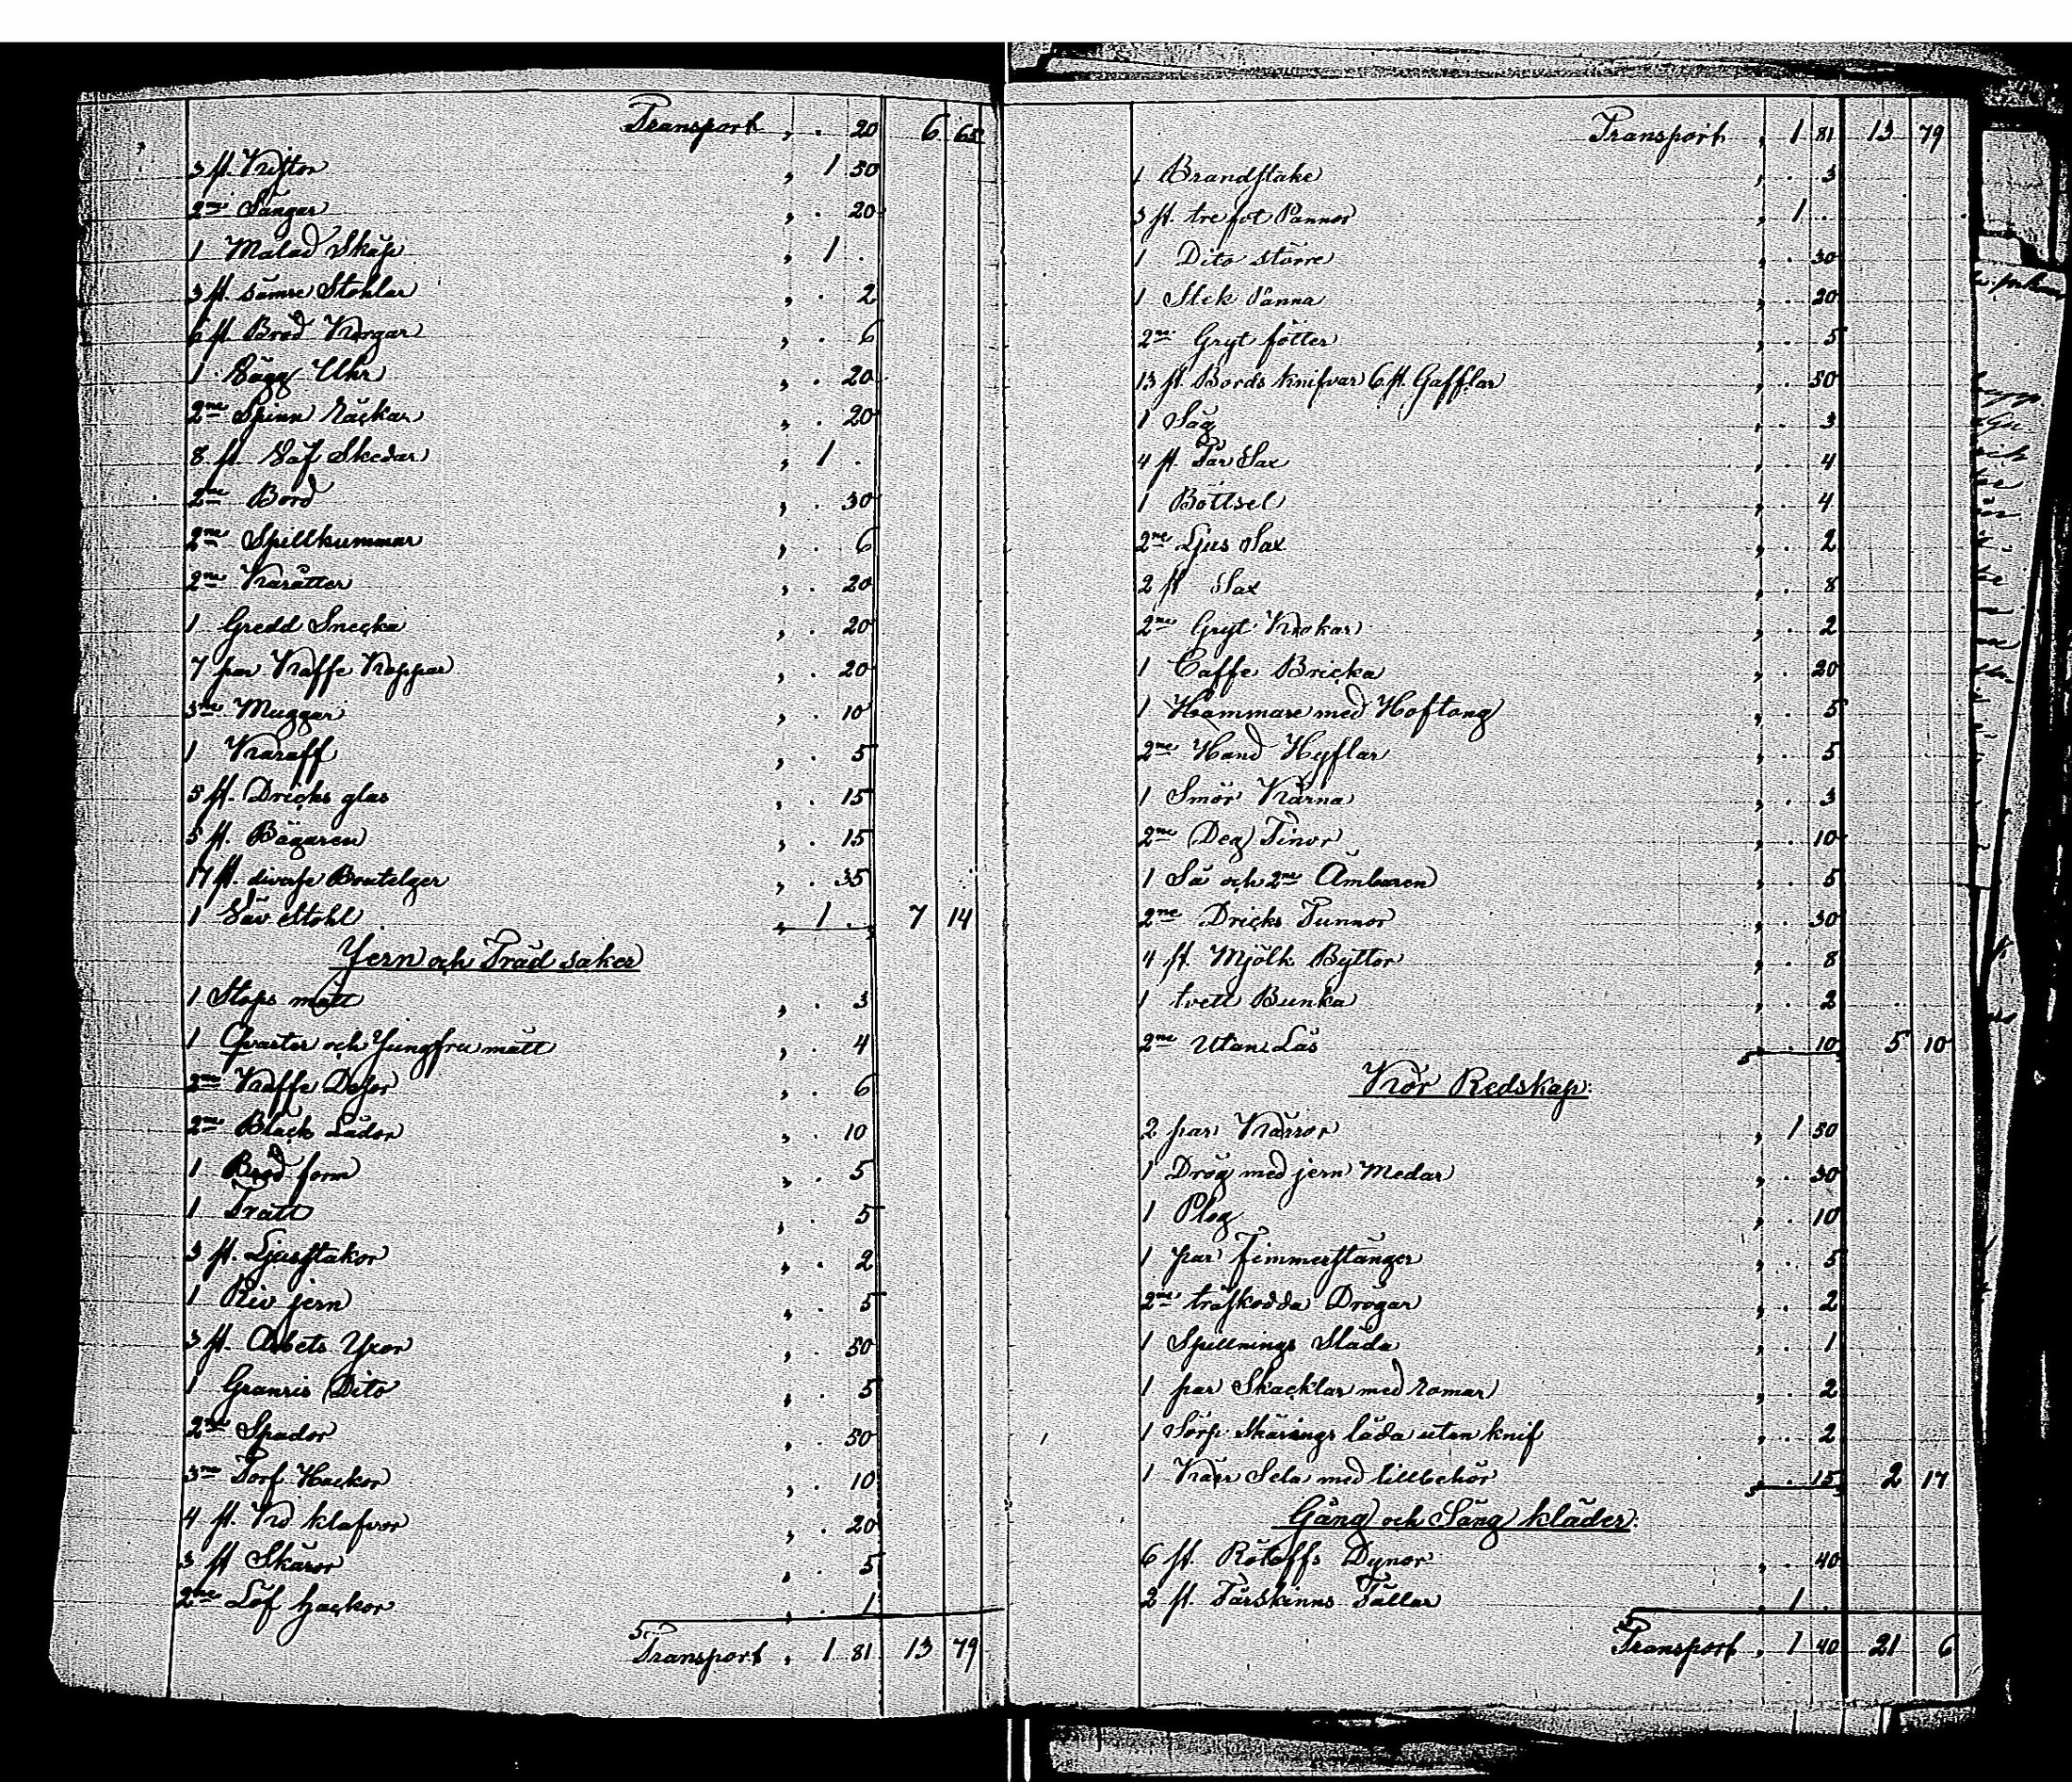 Transport , . 20 6 65
3 st. Kistor , 1 50
2ne Sängar , . 20
1 Målad Skåp , 1 .
3 st. sämre Stohlar , . 2
6 st. Bröd Korgar , . 6
1 Vägg Uhr , . 20
2ne Spinn Räckar , . 20
8 st Skedar , 1 .
2ne Bord , . 30
2ne Spillkummar , . 6
2ne Karotter , . 20
1 Gredd Snecka , . 20
7 par Kaffe Koppar , . 20
3ne Muggar , . 10
1 Karaff , . 5
5 st. Dricks glas , . 15
5 st. Bägaren , . 15
17 st. diverse Boutelger , . 35
1 Väv Stohl , 1 . 7 14
Jern och Träd saker
1 Stops mått , . 3
1 Qvarter och Jungfru mått , . 4
2ne Kaffe Dosor , . 6
2ne Bläck Lådor , . 10
1 Bröd form , . 5
1 Tratt , . 5
3 st. Ljusstakor , . 2
1 Riv jern , . 5
3 st. Arbets Yxor , . 50
1 Granris Dito , . 5
2ne Spador , . 50
3ne Torf Hackor , . 10
4 st. Ved klafvor , . 20
3 st Skäror , . 5
2ne Löf hackor , . 1
Transport , 1 81 13 79
Transport , 1 81 13 79
1 Brandstake , . 3
3 st. tre fot Pannor , 1 .
1 Dito större , . 30
1 Stek Panna , . 20
2ne Gryt fötter , . 5
13 st. Bords knifvar 6 st. Gafflar , . 50
1 Såg , . 3
4 st. Får Sax , . 4
1 Böttsel , . 4
2ne Ljus Sax , . 2
2 st Sax , . 8
2ne Gryt Krokar , . 2
1 Caffe Bricka , . 20
1 Hammare med Hoftang , . 5
2ne Hand Hyflar , . 5
1 Smör Kärna , . 3
2ne Deg Tinor , . 10
1 Så och 2ne Ämbaren , . 5
2ne Dricks Tunnor , . 30
4 st. Mjölk Byttor , . 8
1 tvett Bunka , . 2
2ne Utan Lås , . 10 5 10
Kör Redskap:
2 par Kärror , 1 50
1 Drög med jern Medar , . 30
1 Plog , . 10
1 par Timmerstänger , . 5
2ne träskodda Drögar , . 2
1 Spillnings Släda , . 1
1 par Skacklar med romar , . 2
1 Sörp Skärings låda utan knif , . 2
1 Kärr Sela med tillbehör , . 15 2 17
Gång och Säng kläder:
6 st. Dynor , . 40
2 st. Fårskinns Fällar , 1 .
Transport , 1 40 21 6